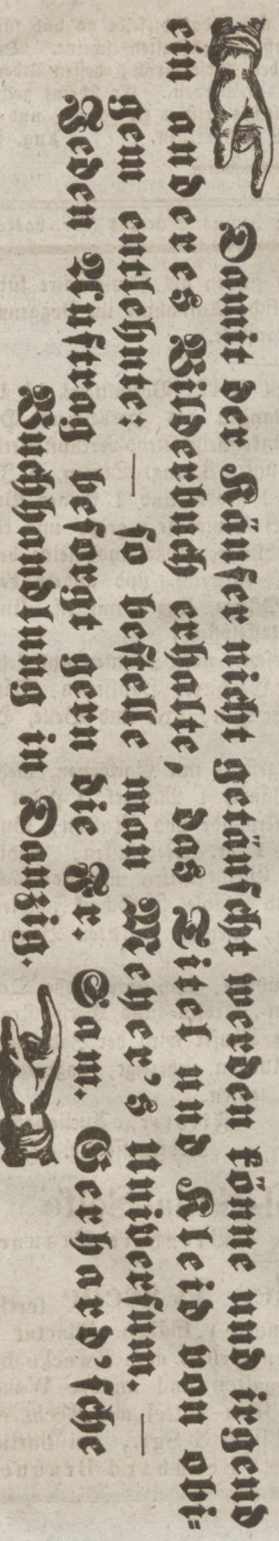 Damit der Käufer nicht getäuscht werden könne und irgend
ein anderes Bilderbuch erhalte, das Titel und Kleid von obi-
gem entlehnte: — so bestelle man Meyer's Universum. —
Jeden Auftrag besorgt gern die Fr. Sam. Gerhard'sche
Buchhandlung in Danzig.